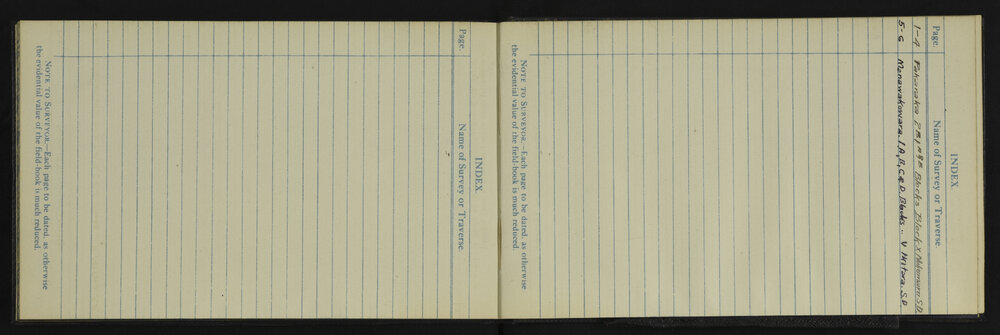 INDEX.
Page. Name of Survey or Traverse.
1-4 Blocks Block X S.D.
5-6 Manawakawara. 1.A, B, C & D. Blocks .. V S.D.
NOTE TO SURVEYOR.—Each page to be dated, as otherwise
the evidential value of the field-book is much reduced.
INDEX.
Page. Name of Survey or Traverse.
NOTE TO SURVEYOR.—Each page to be dated, as otherwise
the evidential value of the field-book is much reduced.